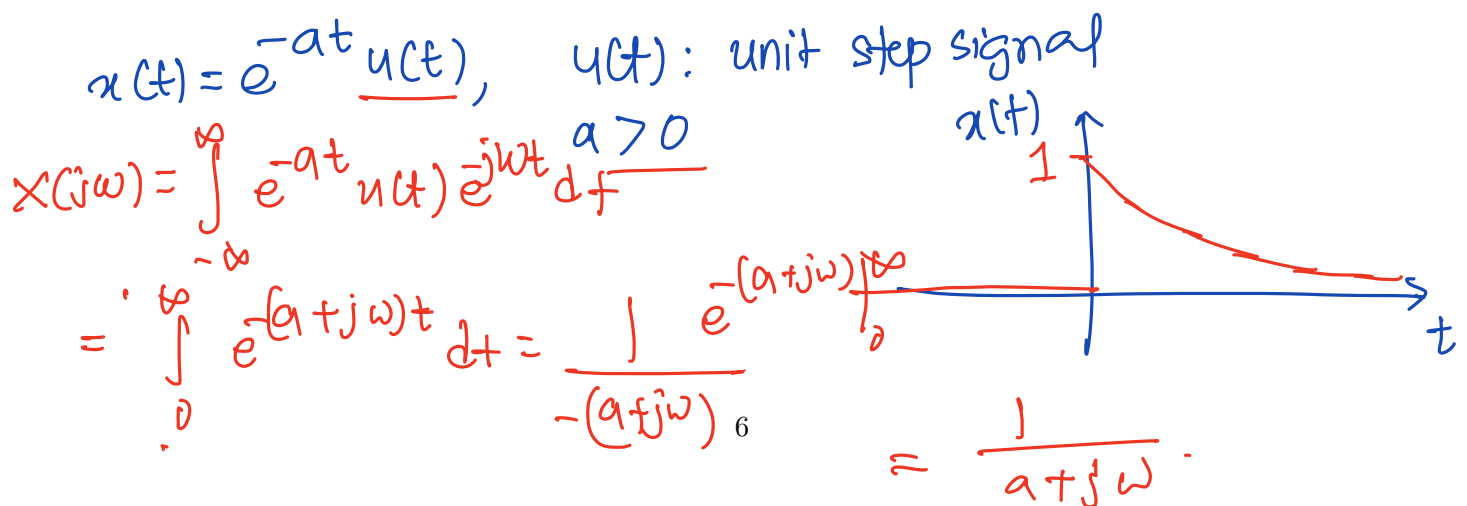 x(t) = e^{-at} u(t), u(t): unit step signal
a > 0
x(t)
1
X(jω) = ∫_{-∞}^{∞} e^{-at} u(t) e^{-jωt} dt
= ∫_{0}^{∞} e^{-(a+jω)t} dt = 1/(-(a+jω)) e^{-(a+jω)} |_{0}^{∞}
t
6
= 1/(a+jω).